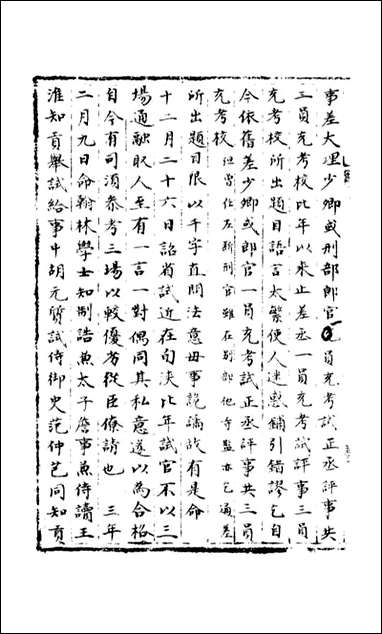 事差大理少卿或刑部郎官一員充考試正丞評事共
三員充考校比年以來止差丞一員充考試評事三員
充考校所出題目語言太繁使人迷惑鋪引錯謬乞自
今依舊差少卿或郎官一員充考試正丞評事共三員
充考校但曾任左斷刑官雖在別部他寺監亦乞通差
所出題目限以千字直問法意毋事詭譎故有是命
十二月二十六日詔省試近在旬浹比年試官不以三
場通融取人至有一言一對偶同其私意遂以為合格
自今有司須參考三場以較優劣從臣僚請也 三年
二月九日命翰林學士知制誥兼太子詹事兼侍讀王
淮知貢舉試給事中胡元質試侍御史范仲芑同知貢